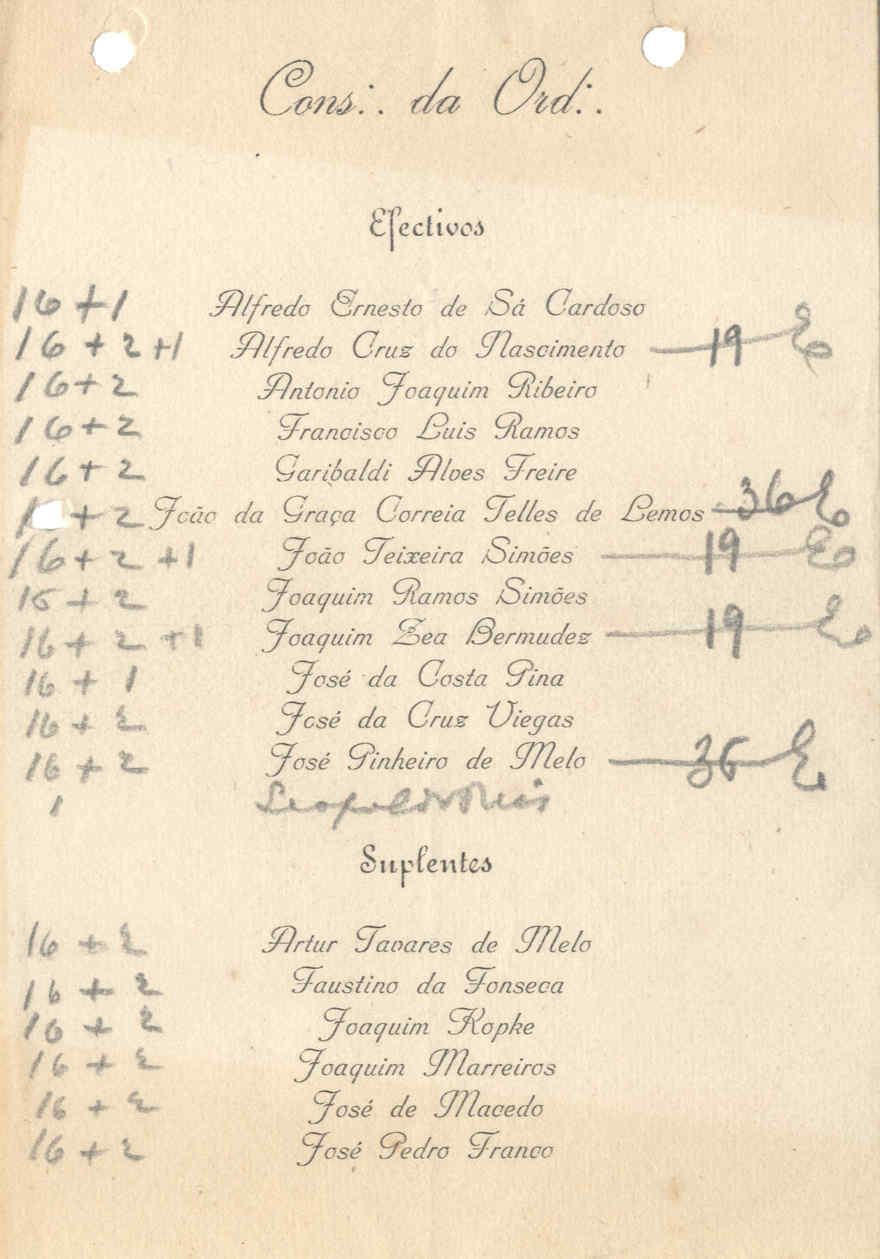 Cons∴ da Ord∴
Efectivos
16 + 1 Alfredo Ernesto de Sá Cardoso
16 + 2 + 1 Alfredo Cruz do Nascimento — 19
16 + 2 Antonio Joaquim Ribeiro
16 + 2 Francisco Luis Ramos
16 + 2 Garibaldi Alves Freire
+ 2 João da Graça Correia Telles de Lemos — 36
16 + 2 + 1 João Teixeira Simões — 19
16 + 2 Joaquim Ramos Simões
16 + 2 + 1 Joaquim Zea Bermudez — 19
16 + 1 José da Costa Pina
16 + 2 José da Cruz Viegas
16 + 2 José Pinheiro de Melo — 36
1 Leopoldo
Suplentes
16 + 2 Artur Tavares de Melo
16 + 2 Faustino da Fonseca
16 + 2 Joaquim Kopke
16 + 2 Joaquim Marreiros
16 + 2 José de Macedo
16 + 2 José Pedro Franco